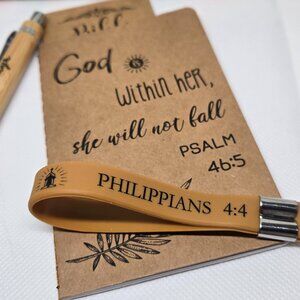 God is
within her,
she will not fall
PSALM
46:5
PHILIPPIANS 4:4